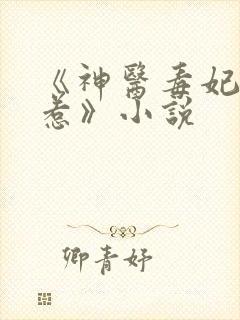 《神醫毒妃
惹》小説
卿青妤